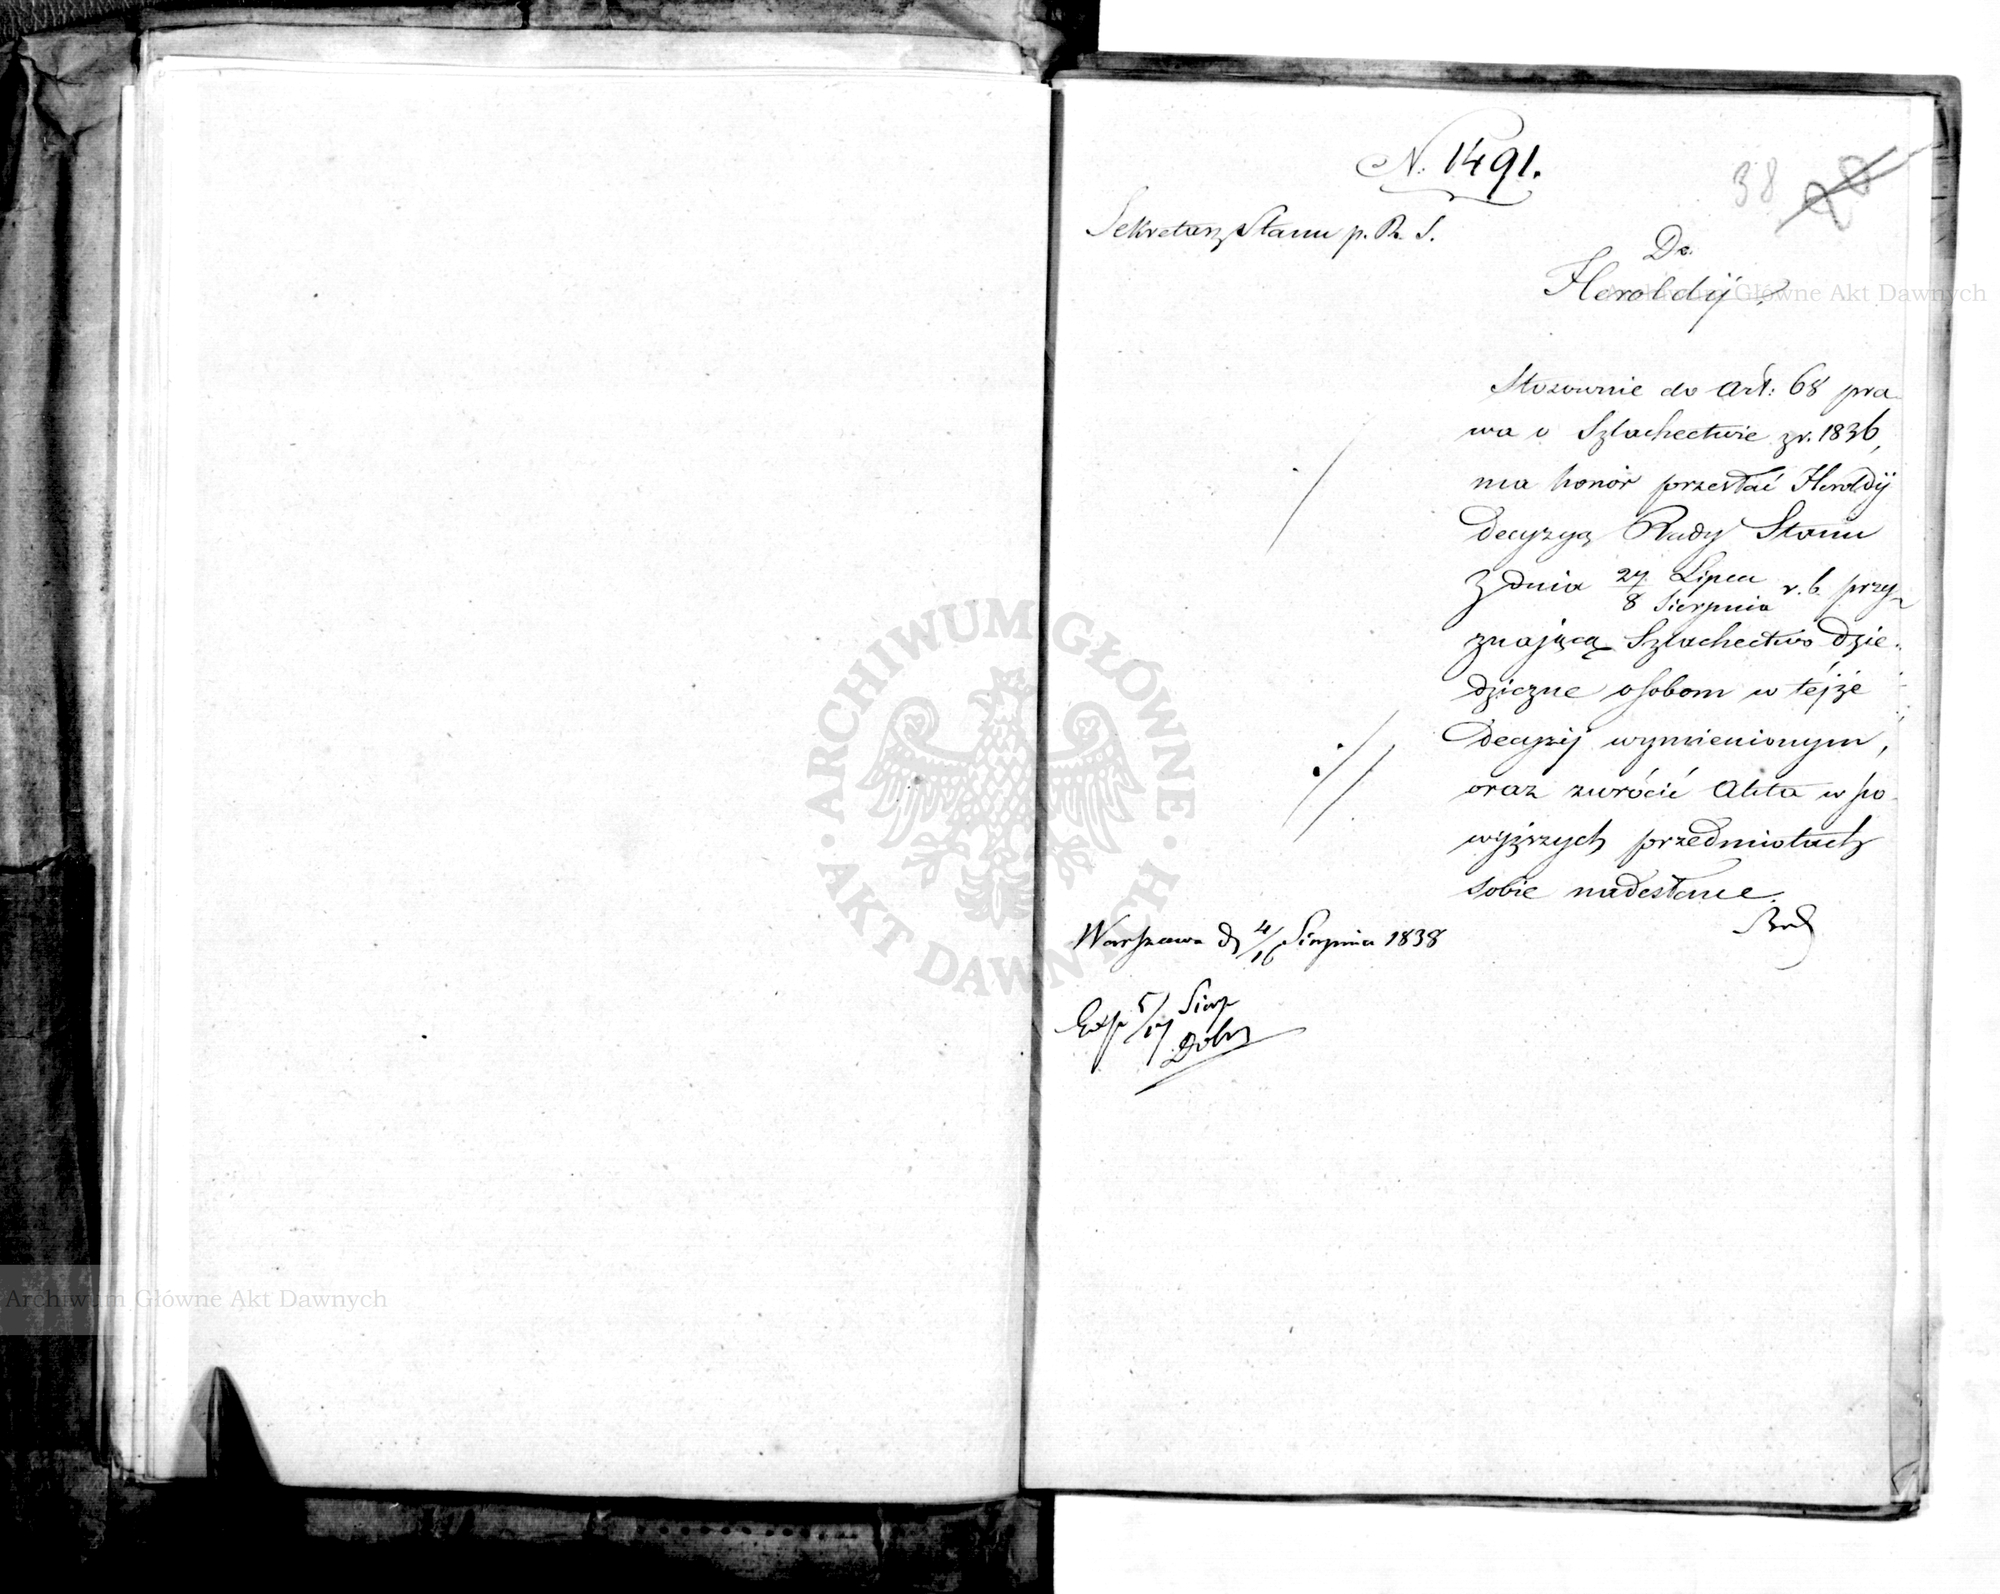 N. 1491.
38
Sekretarz Stanu p. R. S.
Do
Heroldyi
Archiwum Główne Akt Dawnych
Stosownie do Art: 68 pra-
wa o Szlachectwie z r. 1836,
ma honor przesłać Heroldyi
Decyzyą Rady Stanu
z dnia 27 Lipca / 8 Sierpnia r. b. przy-
znającą Szlachectwo dzie-
dziczne osobom w tejże
Decyzyi wymienionym,
oraz zwrócić Akta w po-
wyższych przedmiotach
sobie nadesłane.
Warszawa d 4/16 Sierpnia 1838
Exp 5/17 Sierp
ARCHIWUM GŁÓWNE
AKT DAWNYCH
Archiwum Główne Akt Dawnych